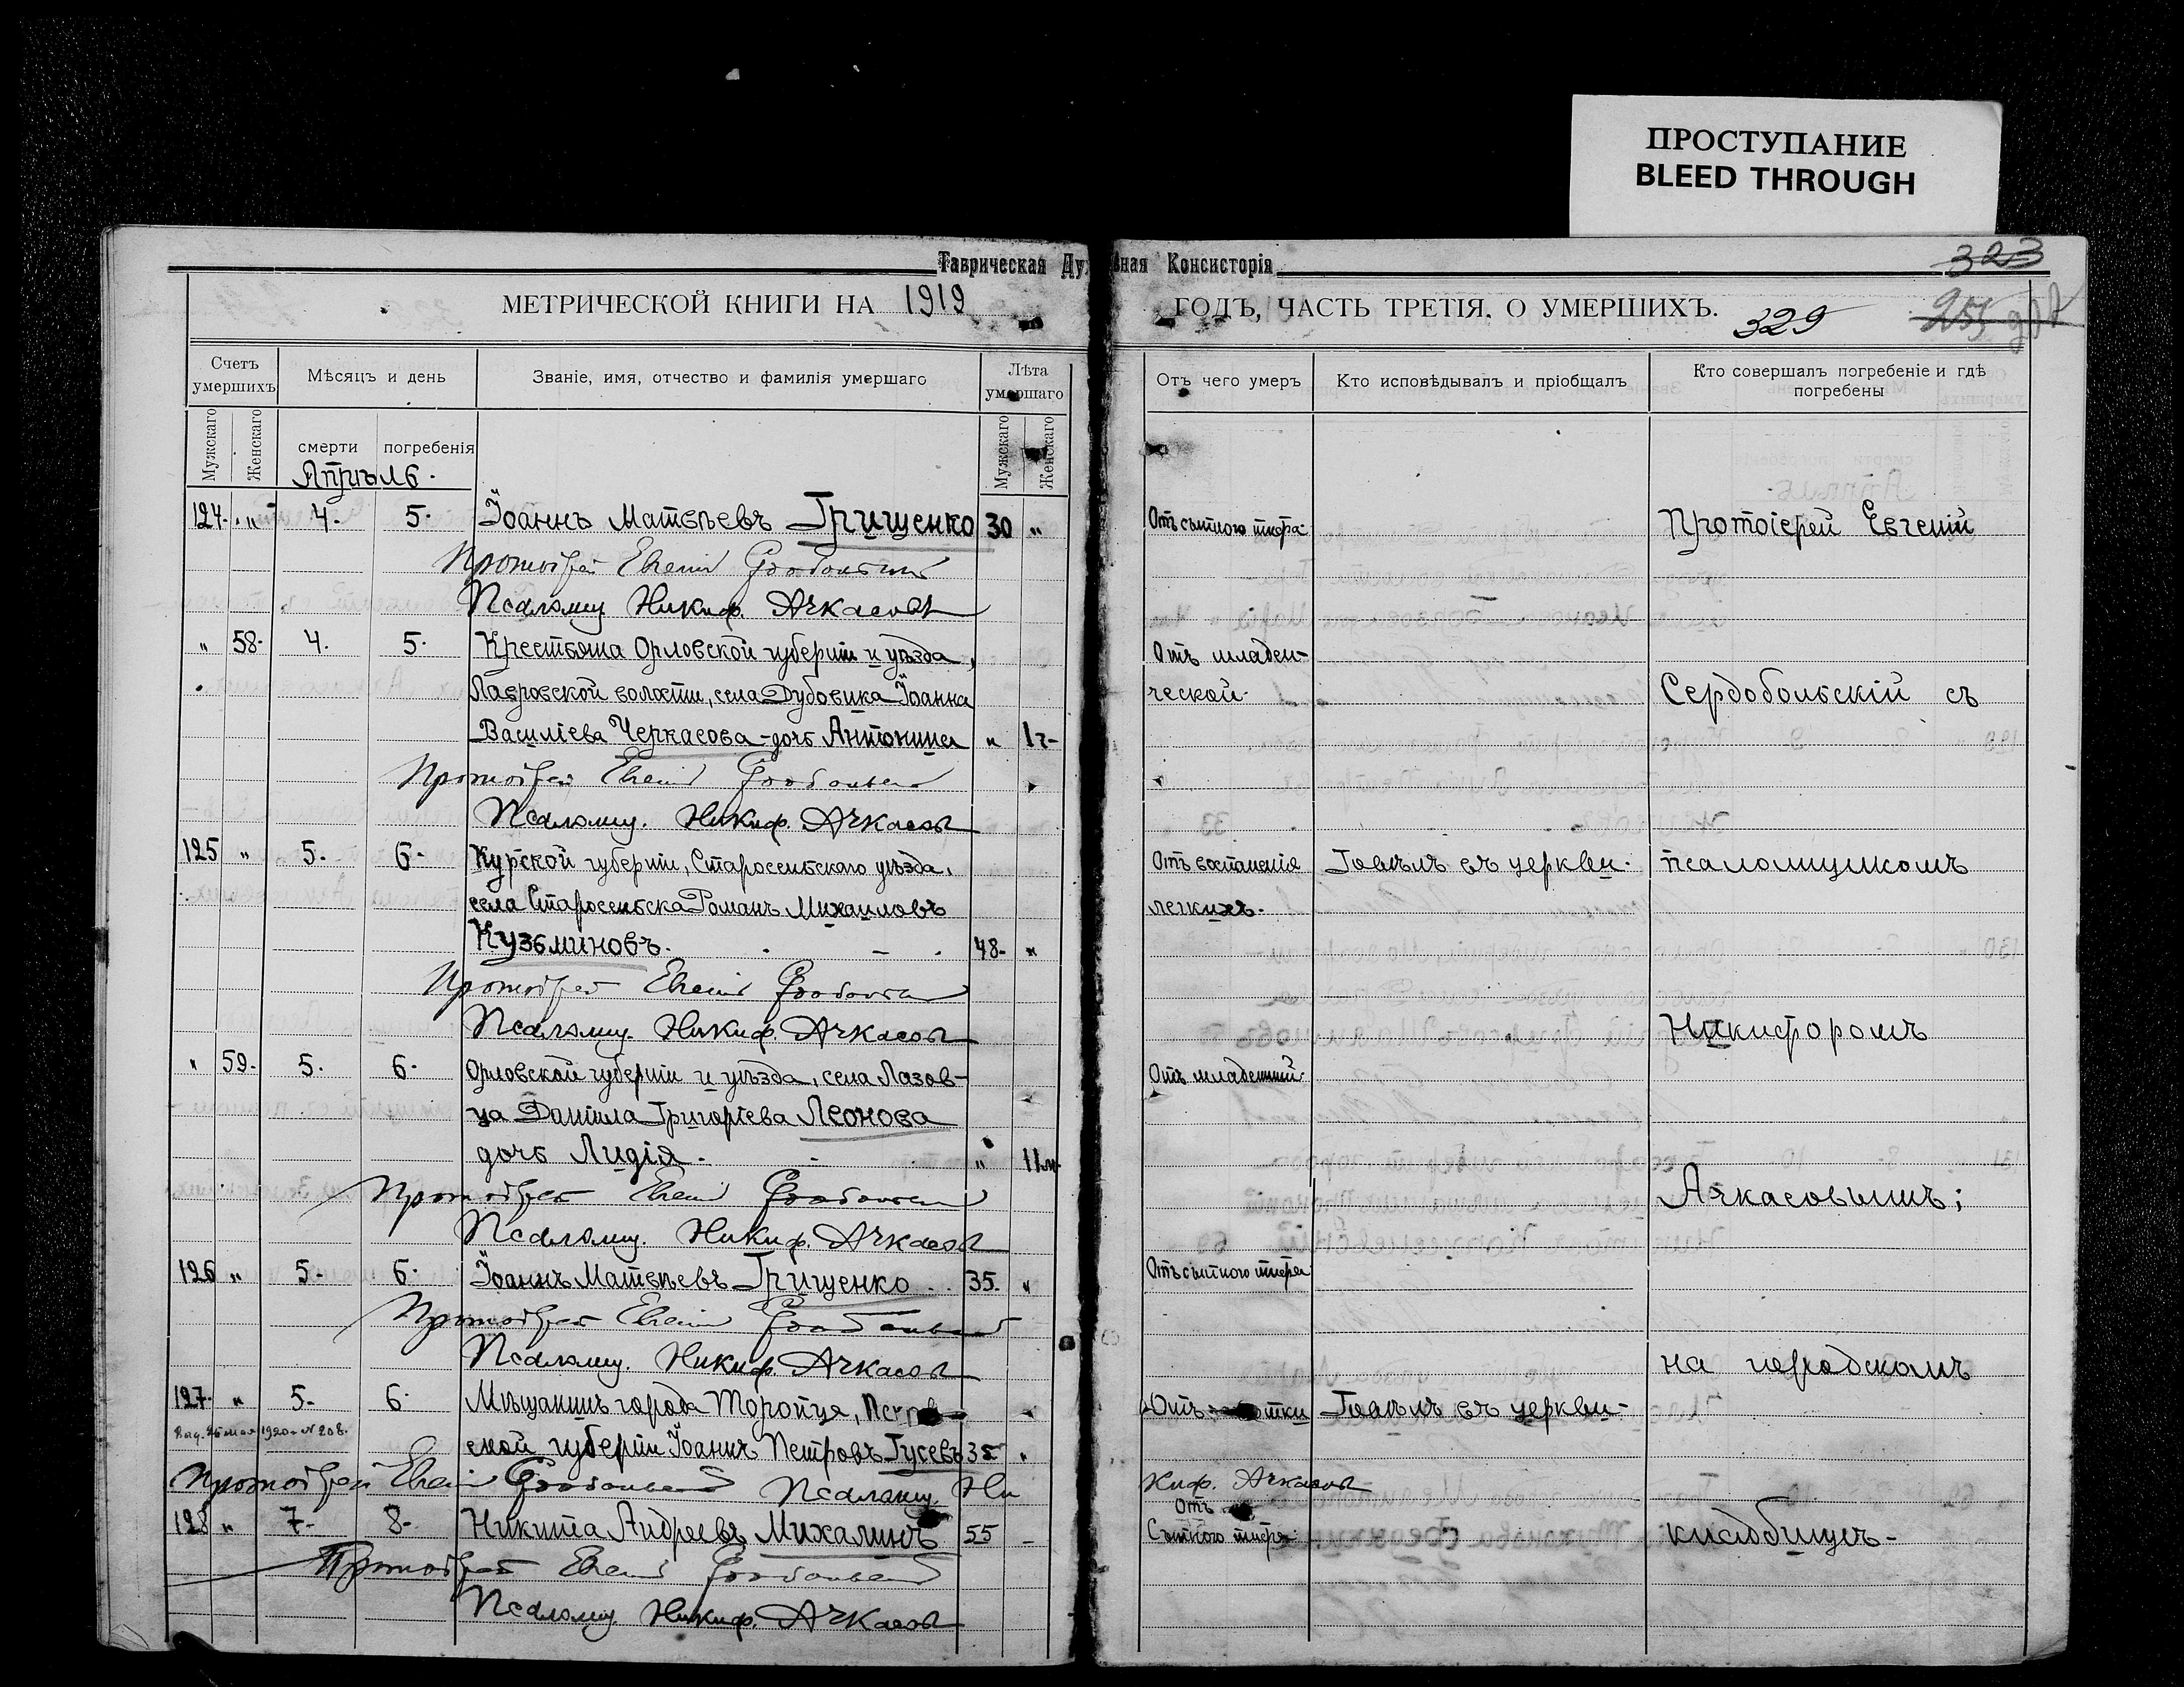 ПРОСТУПАНИЕ
BLEED THROUGH
Таврическая Духовная Консисторія
323
МЕТРИЧЕСКОЙ КНИГИ НА 1919 ГОДЪ, ЧАСТЬ ТРЕТІЯ, О УМЕРШИХЪ.
329
Счетъ умершихъ
Мѣсяцъ и день
Званіе, имя, отчество и фамилія умершаго
Лѣта умершаго
Отъ чего умеръ
Кто исповѣдывалъ и пріобщалъ
Кто совершалъ погребеніе и гдѣ погребены
Мужскаго Женскаго смерти погребенія Мужскаго Женскаго
Апрѣль.
124. " 4. 5. Іоаннъ Матвѣевъ Грищенко 30 " Отъ сыпного тифа Протоіерей Евгеній
Протоіерей Евгеній Сердобольскій
Псаломщ. Никиф. Ачкасовъ
" 58. 4. 5. Крестьяна Орловской губерніи и уѣзда, Отъ младен-
Лавровской волости, села Дубовика Іоанна ческой. Сердобольскій съ
Василіева Черкасова - дочь Антонина " 1 г.
Протоіерей Евгеній Сердобольскій
Псаломщ. Никиф. Ачкасовъ
125 " 5. 6. Курской губерніи, Старосельскаго уѣзда, Отъ воспаленія Тоанъ въ церкви. псаломщикомъ
села Старосельска Романъ Михаиловъ легкихъ.
Кузьминовъ. 48. "
Протоіерей Евгеній Сердобольскій
Псаломщ. Никиф. Ачкасовъ Никифоромъ
" 59. 5. 6. Орловской губерніи и уѣзда, села Лазов- Отъ младенчий
ца Данiила Григоріева Леонова
дочь Лидія. " 11 м.
Протоіерей Евгеній Сердобольскій Ачкасовымъ;
Псаломщ. Никиф. Ачкасовъ
126 " 5. 6. Іоаннъ Матвѣевъ Грищенко 35. " Отъ сыпного тифа
Протоіерей Евгеній Сердобольскій
Псаломщ. Никиф. Ачкасовъ на городскомъ
127. " 5. 6. Мѣщанинъ города Торопца, Псков- Отъ въ церкви
Выд. 26 мая 1920 г. № 208.
ской губерніи Іоаннъ Петровъ Гусевъ 35 "
Протоіерей Евгеній Сердобольскій Псаломщ. Никиф. Ачкасовъ
128 " 7. 8. Никита Андреевъ Михалинъ 55 - Отъ Сыпного тифа. кладбищѣ.
Протоіерей Евгеній Сердобольскій
Псаломщ. Никиф. Ачкасовъ